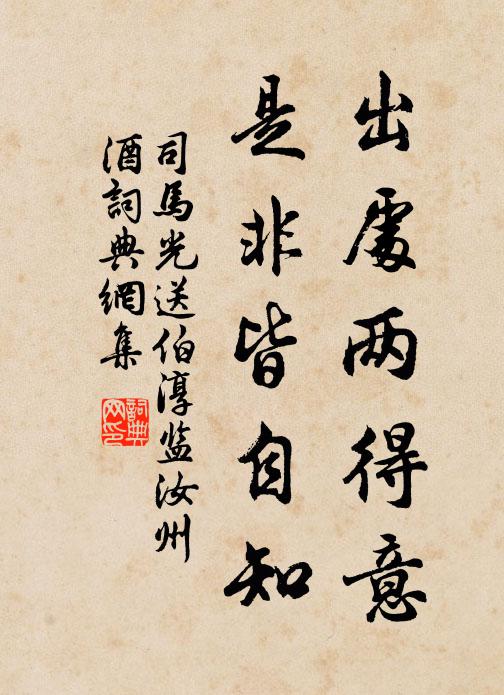 出處两得意
是非皆自知
司馬光送伯淳监汝州
酒詞典網集
詞典网印